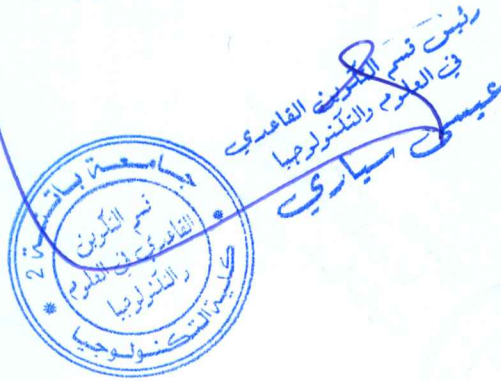 رئيس قسم التكوين القاعدي
في العلوم والتكنولوجيا
عيسى سياري
جامعة باتنة 2
قسم التكوين
القاعدي في العلوم
والتكنولوجيا
كلية التكنولوجيا